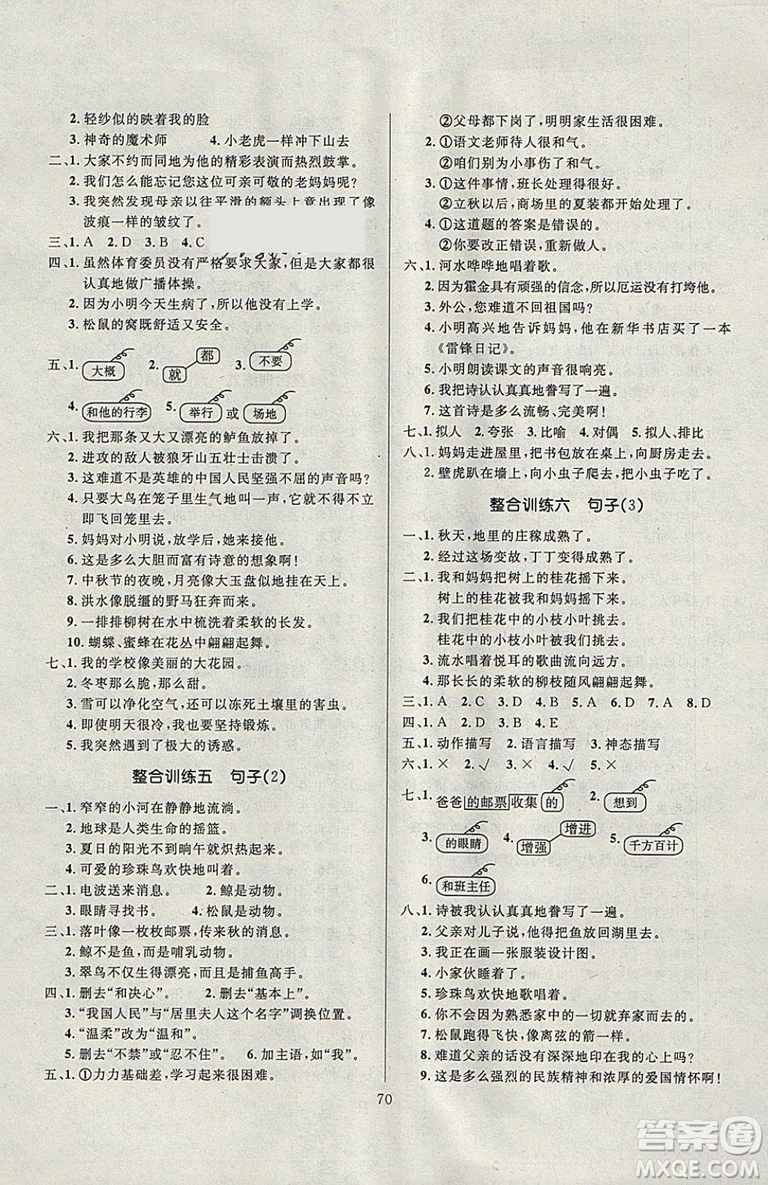 2. 轻纱似的映着我的脸
3. 神奇的魔术师 4. 小老虎一样冲下山去
二、1. 大家不约而同地为他的精彩表演而热烈鼓掌。
2. 我们怎么能忘记您这位可亲可敬的老妈妈呢?
3. 我突然发现母亲以往平滑的额头上竟出现了像
波痕一样的皱纹了。
三、1. A 2. D 3. B 4. C
四、1. 虽然体育委员没有严格要求大家,但是大家都很
认真地做广播体操。
2. 因为小明今天生病了,所以他没有上学。
3. 松鼠的窝既舒适又安全。
五、1. 大概 2. 就 都 3. 不要
4. 和他的行李 5. 举行 或 场地
六、1. 我把那条又大又漂亮的鲈鱼放掉了。
2. 进攻的敌人被狼牙山五壮士击溃了。
3. 这难道不是英雄的中国人民坚强不屈的声音吗?
4. 只要大鸟在笼子里生气地叫一声,它就得立
即飞回笼里来。
5. 妈妈对小明说,放学后,她来接他。
6. 这是多么大胆而富有诗意的想象啊!
7. 中秋节的夜晚,月亮像大玉盘似地挂在天上。
8. 洪水像脱缰的野马狂奔而来。
9. 一排排柳树在水中梳洗着柔软的长发。
10. 蝴蝶、蜜蜂在花丛中翩翩起舞。
七、1. 我的学校像美丽的大花园。
2. 冬枣那么脆,那么甜。
3. 雪可以净化空气,还可以冻死土壤里的害虫。
4. 即使明天很冷,我也要坚持锻炼。
5. 我突然遇到了极大的诱惑。
整合训练五 句子(2)
一、1. 窄窄的小河在静静地流淌。
2. 地球是人类生命的摇篮。
3. 夏日的阳光不到响午就炽热起来。
4. 可爱的珍珠鸟欢快地叫着。
二、1. 电波送来消息。 2. 鲸是动物。
3. 眼睛寻找书。 4. 松鼠是动物。
三、1. 落叶像一枚枚邮票,传来秋的消息。
2. 鲸不是鱼,而是哺乳动物。
3. 翠鸟不但生得漂亮,而且还是捕鱼高手。
四、1. 删去“和决心”。 2. 删去“基本上”。
3. “我国人民”与“居里夫人这个名字”调换位置。
4. “温柔”改为“温和”。
5. 删去“不禁”或“忍不住”。 6. 加主语,如“我”。
五、1. ①力力基础差,学习起来很困难。
②父母都下岗了,明明家生活很困难。
2. ①语文老师待人很和气。
②咱们别为一点小事伤了和气。
3. ①这件事情,班长处理得很好。
②立秋以后,商场里的夏装都在处理。
4. ①这道题的答案是错误的。
②你要改正错误,重新做人。
六、1. 河水哗哗地唱着歌。
2. 因为霍金具有顽强的信念,所以厄运没有打垮他。
3. 外公,您难道不回祖国吗?
4. 小明高兴地告诉妈妈,他在新华书店买了一本
《雷锋日记》。
5. 小明朗读课文的声音很响亮。
6. 我把诗认认真真地誊写了一遍。
7. 这首诗是多么流畅、完美啊!
七、1. 拟人 2. 夸张 3. 比喻 4. 对偶 5. 拟人、排比
八、1. 妈妈走进屋里,把书包放在桌上,向厨房走去。
2. 壁虎趴在墙上,向小虫子爬去,把小虫子吃了。
整合训练六 句子(3)
一、1. 秋天,地里的庄稼成熟了。
2. 经过这场变故,丁丁变得成熟了。
二、1. 我和妈妈把树上的桂花摇下来。
树上的桂花被我和妈妈摇下来。
2. 我们把桂花中的小枝小叶挑去。
桂花中的小枝小叶被我们挑去。
3. 流水唱着悦耳的歌曲流向远方。
4. 那长长的柔软的柳枝随风翩翩起舞。
三、1. A 2. C 3. D 4. C 5. C 6. A 7. A 8. D
四、1. A 2. D 3. B 4. E
五、1. 动作描写 2. 语言描写 3. 神态描写
六、1. × 2. √ 3. × 4. √
七、1. 爸爸的邮票收集 的 2. 想到
3. 的眼睛 4. 增强 增进 5. 千方百计
6. 和班主任
八、1. 诗被我认认真真地誊写了一遍。
2. 父亲对儿子说,他得把鱼放回湖里去。
3. 我正在画一张服装设计图。
4. 小家伙睡着了。
5. 珍珠鸟欢快地歌唱着。
6. 你不会因为熟悉家中的一切就弃家而去的。
7. 松鼠跑得飞快,像离弦的箭一样。
8. 难道父亲的话没有深深地印在我的心上吗?
9. 这是多么强烈的民族精神和浓厚的爱国情怀啊!
70
答案圈
MXQE.COM